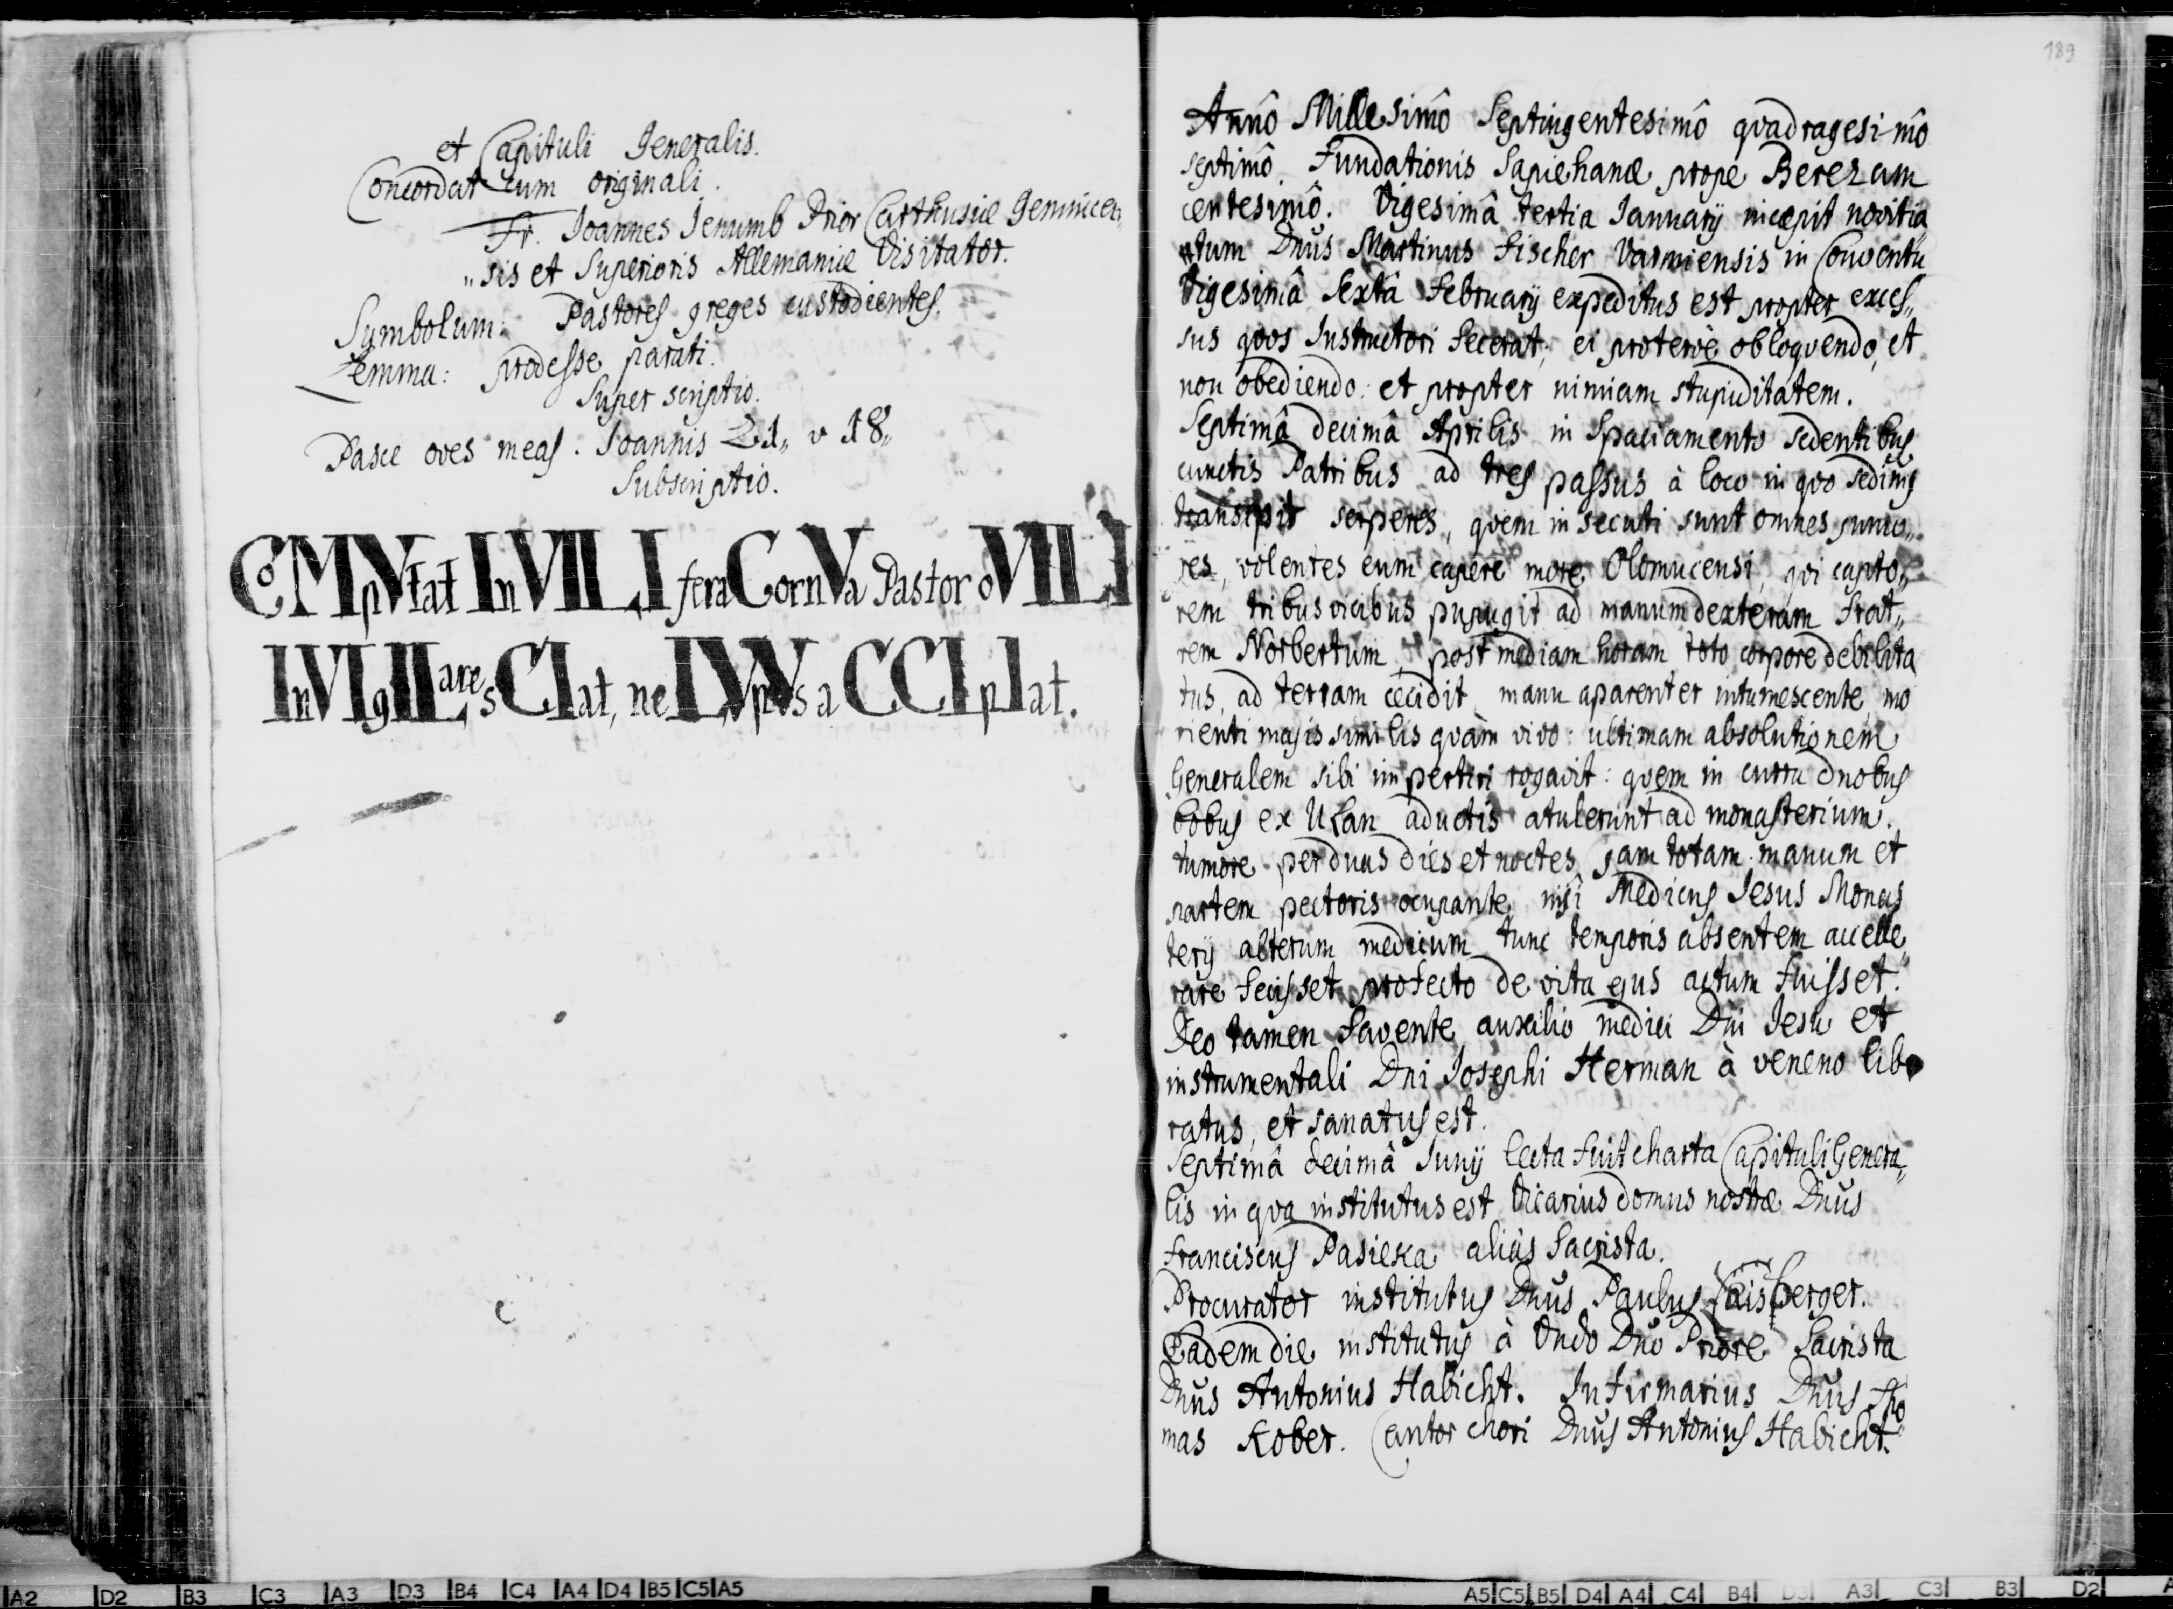 et Capituli Generalis.
Concordat cum originali.
Fr. Joannes Jenumb Prior Carthusiæ Gemnicen„
„sis et Superioris Allemaniæ Visitator.
Symbolum: Pastores greges custodientes.
Lemma: prodesse parati.
Super scriptio.
Pasce oves meas. Joannis 21„ v 18„
Subscriptio.
CoMpVtat InVILLI fera CornVa Pastor oVILI
InVIgILare sCIat, ne LVpVs a CCIpIat.
189
Annô Millesimô Septingentesimô qvadragesimô
septimô. Fundationis Sapiehanæ prope Berezam
centesimô. Vigesimâ tertia Januarij incepit novitia
tum Dnus Martinus Fischer Varmiensis in Conventu
Vigesimâ Sextâ Februarij expeditus est propter exces„
sus qvos Instructori fecerat, ei protervè obloqvendo, et
non obediendo: et propter nimiam stupiditatem.
Septimâ decimâ Aprilis in Spaciamento sedentibus
cunctis Patribus ad tres passus à loco in qvo sedimus
transipit serpens, qvem insecuti sunt omnes junio„
res, volentes eum capere more Olomucensi, qvi capto„
rem tribus vicibus pupugit ad manum dexteram Frat„
rem Norbertum, post mediam horam toto corpore debilita
tus, ad terram cecidit, manu aparenter intumescente, mo
rienti magis similis qvàm vivo: ultimam absolutionem
Generalem sibi impertiri rogavit: qvem in curru duobus
bobus ex Ulan aductis atulerunt ad monasterium.
tumore per duas dies et noctes jam totam manum et
partem pectoris ocupante, nisi Medicus Jesus Monas
terij alterum medicum tunc temporis absentem accelle„
rare fecisset, profecto de vita ejus actum fuisset.
Deo tamen favente, auxilio medici Dni Jesu et
instrumentali Dni Josephi Herman à veneno libe
ratus, et sanatus est.
Septimâ decimâ Junij lecta fuit charta Capituli Genera„
lis in qva institutus est Vicarius domus nostræ Dnus
Franciscus Pasieka aliàs Sacrista.
Procurator institutus Dnus Paulus
Eadem die institutus à Vndo Dno Priore Sacrista
Dnus Antonius Habicht. Infirmarius Dnus Tho
mas Kober. Cantor chori Dnus Antonius Habicht.
A2 D2 B3 C3 A3 D3 B4 C4 A4 D4 B5 C5 A5
A5 C5 B5 D4 A4 C4 B4 D3 A3 C3 B3 D2